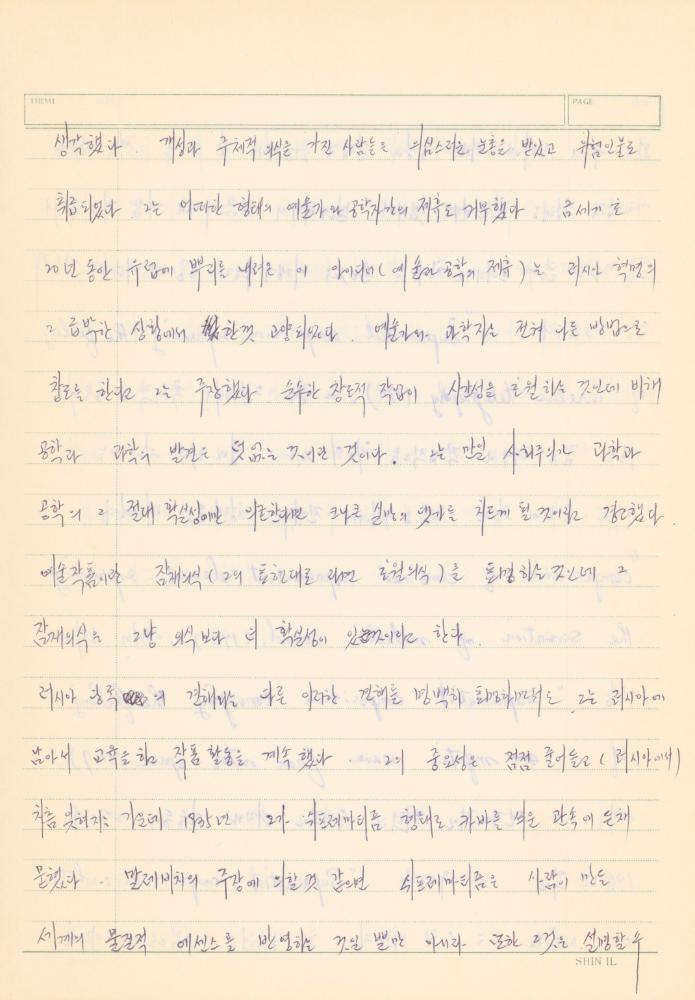 THEME PAGE
생각했다. 개성과 주체적 의식을 가진 사람들은 의심스러운 눈총을 받았고 위험인물로
취급되었다 그는 어떠한 형태의 예술가와 공학자간의 제휴도 거부했다 금세기 초
20년 동안 유럽에 뿌리를 내려온 이 아이디어(예술과 공학의 제휴)는 러시아 혁명의
그 급박한 상황에서 한껏 고양되었다. 예술가와 과학자는 전혀 다른 방법으로
창조를 한다고 그는 주장했다 순수한 창조적 작업이 시간성을 초월하는 것인데 비해
공학과 과학의 발견은 덧없는 것이란 것이다. 그는 만일 사회주의가 과학과
공학의 그 절대 확실성에만 의존한다면 크나큰 실망의 댓가를 치르게 될 것이라고 경고했다.
예술작품이란 잠재의식(그의 표현대로 라면 초월의식)을 표명하는 것인데 그
잠재의식은 그냥 의식보다 더 확실성이 있는것이라고 한다.
러시아 당국의 견해와는 다른 이러한 견해를 명백히 표명하면서도 그는 러시아에
남아서 교육을 하고 작품활동을 계속했다. 그의 중요성은 점점 줄어들고 (러시아에서)
차츰 잊혀지는 가운데 1935년 그가 쉬프레마티즘 형태로 커버를 씌운 관속에 든채
묻혔다. 말레비치의 주장에 의할것 같으면 쉬프레마티즘은 사람이 만든
세계의 물질적 에센스를 반영하는 것일 뿐만 아니라 또한 그것은 설명할 수
SHIN IL